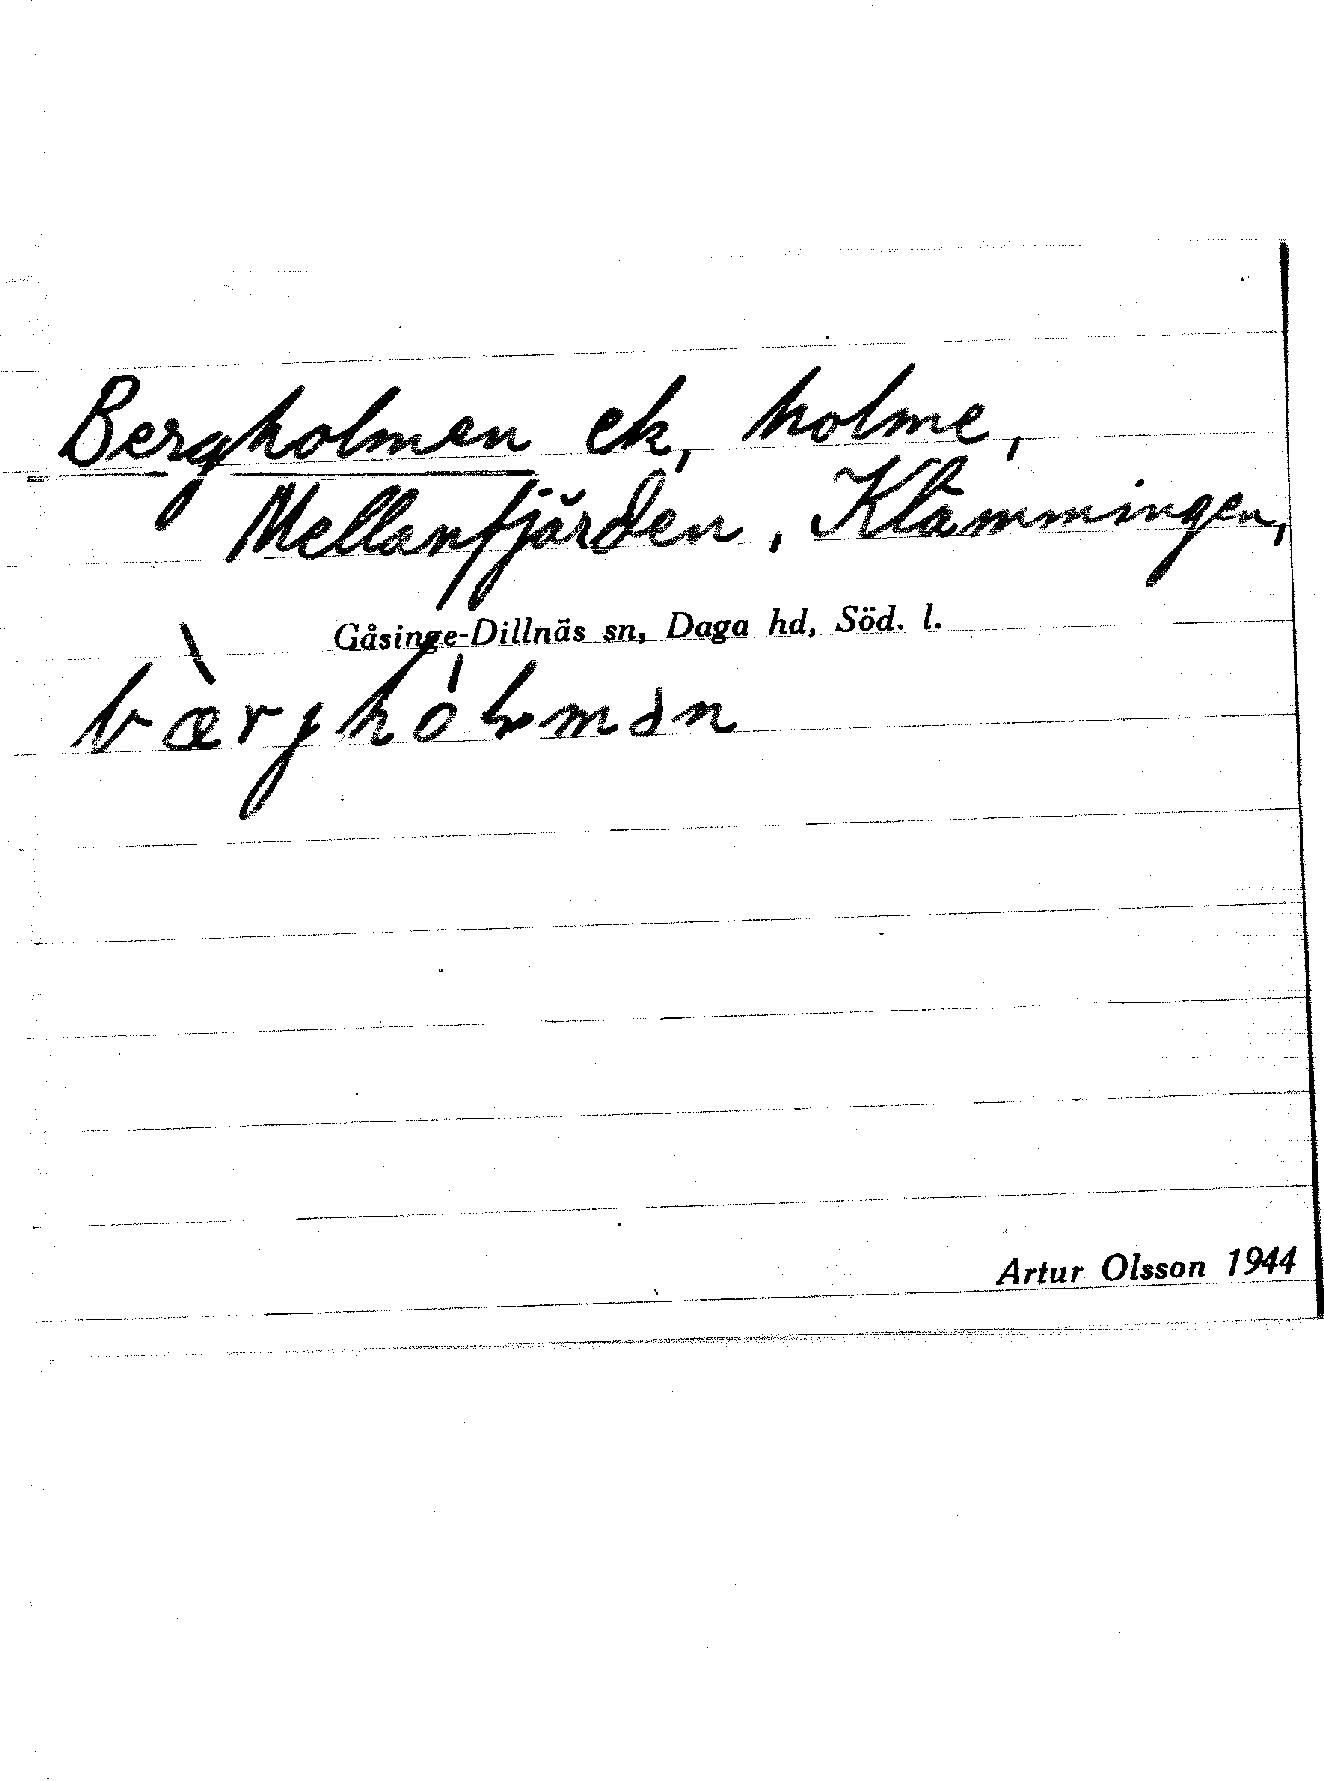 Bergholmen ek, holme,
Mellanfjärden, Klämmingen,
Gåsinge-Dillnäs sn, Daga hd, Söd. l.
bæ̀rjhólmən
Artur Olsson 1944